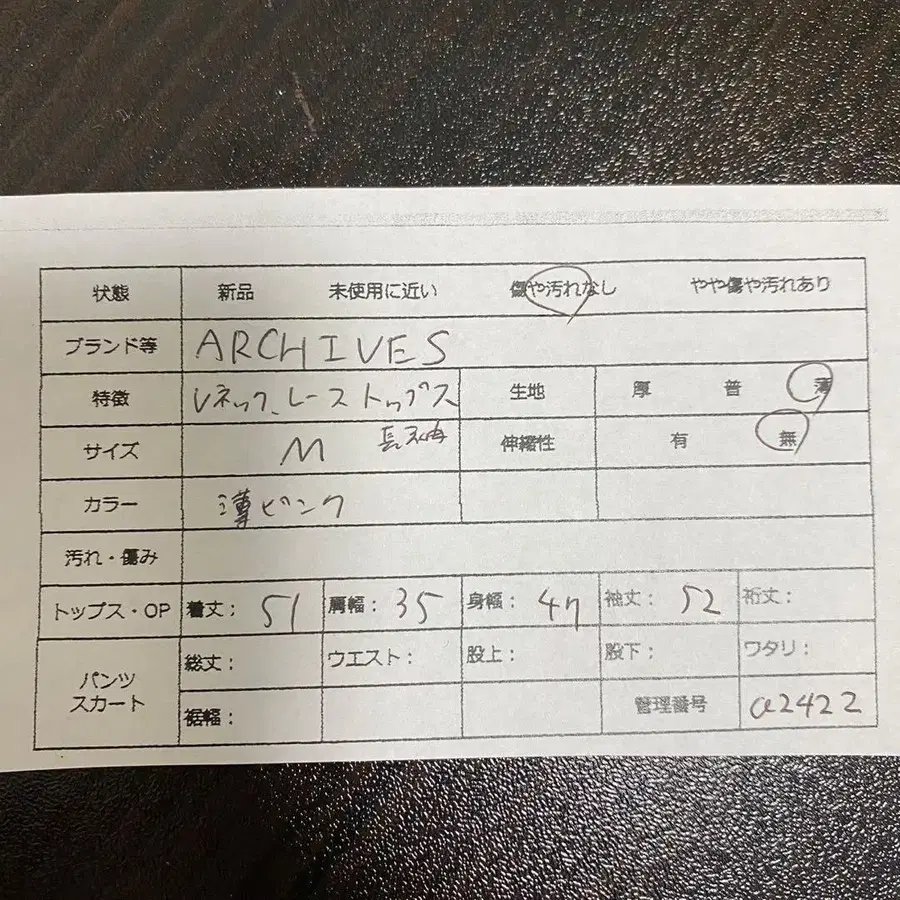 状態 新品 未使用に近い 傷や汚れなし やや傷や汚れあり
ブランド等 ARCHIVES
特徴 Vネック、レーストップス 生地 厚 普 薄
長袖
サイズ M 伸縮性 有 無
カラー 薄ピンク
汚れ・傷み
トップス・OP 着丈: 51 肩幅: 35 身幅: 47 袖丈: 52 裄丈:
パンツ スカート 総丈: ウエスト: 股上: 股下: ワタリ:
裾幅: 管理番号 a2422